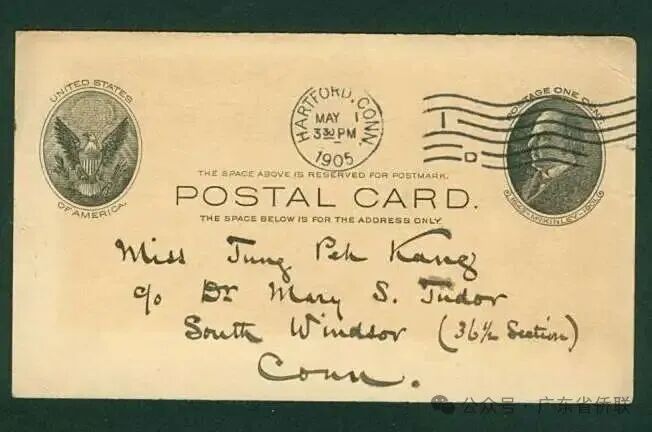 UNITED STATES
OF AMERICA.
HARTFORD, CONN.
MAY 1
3 30 PM
1905
1
D
POSTAGE ONE CENT
1843-McKINLEY-1901
THE SPACE ABOVE IS RESERVED FOR POSTMARK.
POSTAL CARD.
THE SPACE BELOW IS FOR THE ADDRESS ONLY.
Miss Tung Peh Kang
c/o Dr Mary S. Tudor
South Windsor (36½ Section)
Conn.
公众号 · 广东省侨联